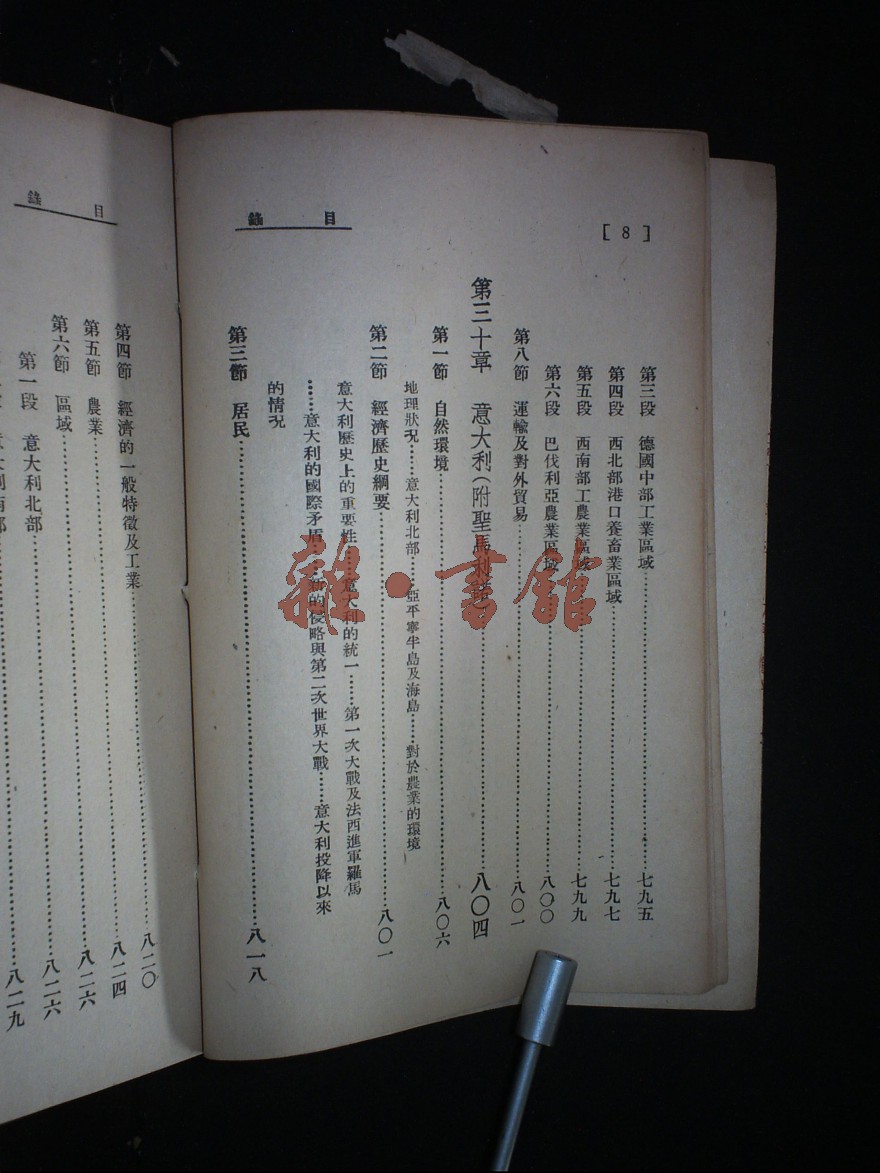 [8]
目錄
第三段 德國中部工業區域……七九五
第四段 西北部港口養畜業區域……七九七
第五段 西南部工農業區域……七九九
第六段 巴伐利亞農業區域……八〇〇
第八節 運輸及對外貿易……八〇一
第三十章 意大利(附聖馬利諾)……八〇四
第一節 自然環境……八〇六
地理狀況……意大利北部……亞平寧半島及海島……對於農業的環境
第二節 經濟歷史綱要……八〇一
意大利歷史上的重要性……意大利的統一……第一次大戰及法西進軍羅馬
……意大利的國際矛盾……新的侵略與第二次世界大戰……意大利投降以來
的情況
第三節 居民……八一八
目錄
第四節 經濟的一般特徵及工業……八二〇
第五節 農業……八二四
第六節 區域……八二六
第一段 意大利北部……八二六
八二九
雜·書館